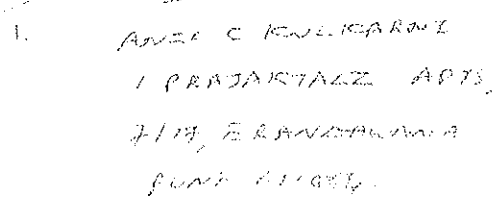 1. ANIL C KULKARNI
1 PRAJAKTALI APTS,
7/19, ERANDAWANA
PUNE